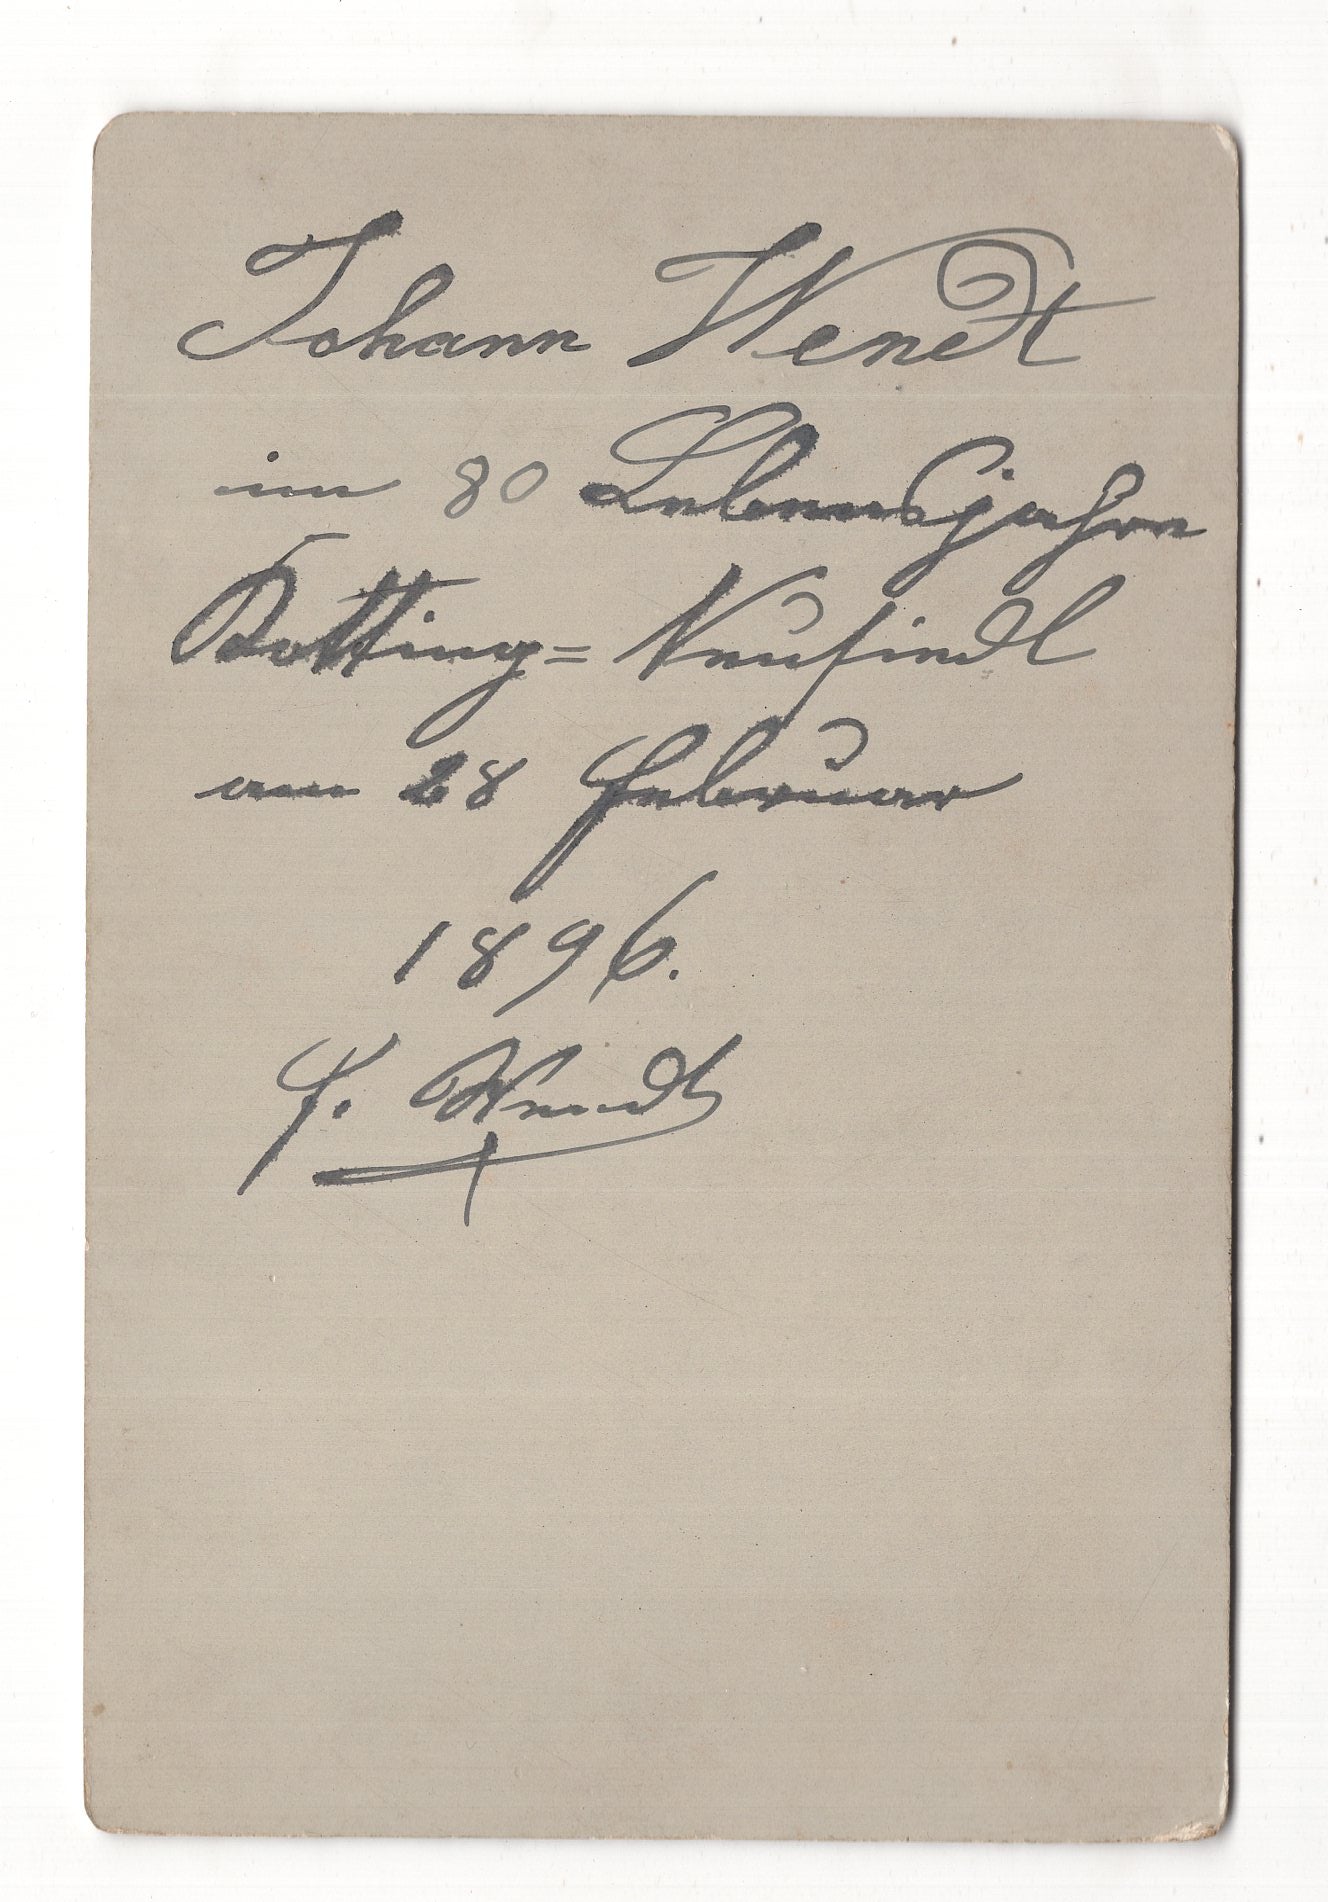 Johann Wendt
im 80 Lebensjahre
Potting= Neusiedl
am 28 Februar
1896.
J. Wendt